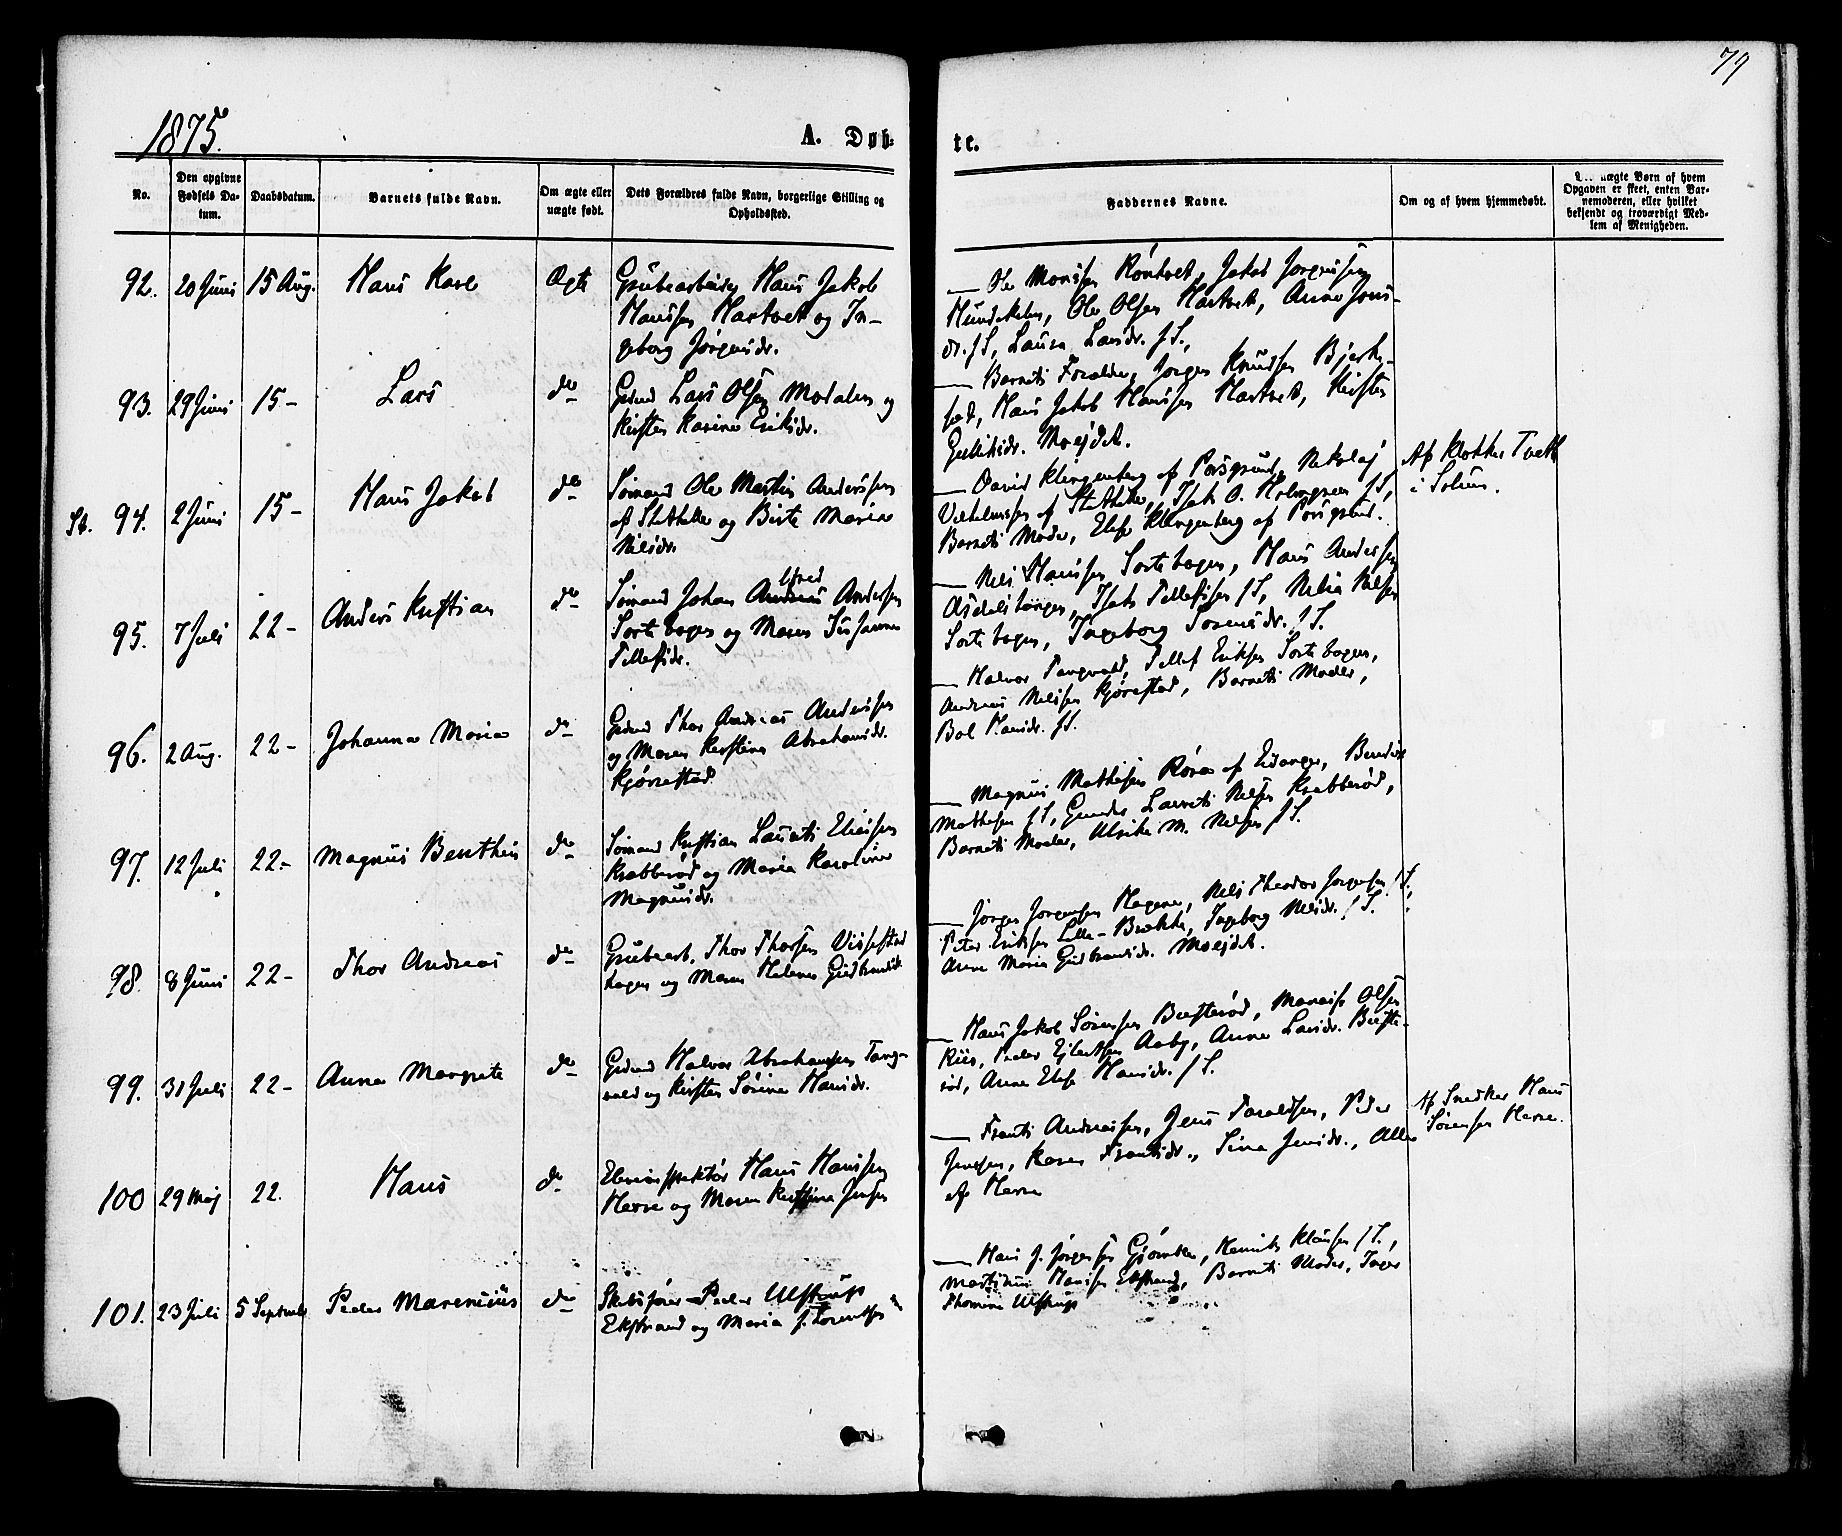 79
1875.
A. Døb-
te.
No.
Den opgivne Fødsels Da-tum.
Daabsdatum.
Barnets fulde Navn.
Om ægte eller uægte født.
Dets Forældres fulde Navn, borgerlige Stilling og Opholdssted.
Faddernes Navne.
Om og af hvem hjemmedøbt.
uægte Børn af hvem Opgaven er skeet, enten Bar-nemoderen, eller hvilket bekjendt og troværdigt Med-lem af Menigheden.
92. 20 Juni 15 Aug. Hans Karl Ægte
Grubearbeider Hans Jakob
Hansen Hartvet og In-
geborg Jørgensdr.
Ole Monsen Røntvet, Jakob Jørgensen
Ole Olsen Hartvet, Anne Jons-
dr. f S, Laura Larsdr. f S.,
93. 29 Juni 15 - Lars do
Grdmd Lars Olsen Modalen og
Kirsten Karine Eriksdr.
Barnets Forældre, Jørgen Knudsen Bjerke-
sæt, Hans Jakob Hansen Hartvet, Kirsten
Gulliksdr.
St. 94. 2 Juni 15 - Hans Jakob do
Sømand Ole Martin Anderssen
af St. og Berte Maria
Nilsdr.
David Klingenberg af Porsgrund, Nikolaj
Vilhelmsen af St. Isak O. Holmgren f S,
Barnets Moder, Elise Klingenberg af Porsgrund.
Af Klokker Tveth
i Solum.
95. 7 Juli 22 - Anders Kristian do
lfred
Sømand Johan Andreas Andersen
Sortebogen og Maren Susanne
Tellefsdr.
Nils Hansen Sortebogen, Hans Andersen
Isak Tellefsen f S, Nilia Nilsen
Sortebogen, Ingeborg Sørensdr. f S.
96. 2 Aug. 22 - Johanna Maria do
Grdmd Thor Andreas Anderssen
og Maren Kirstine Abrahamsdr.
Kjørrestad
Halvor Tangvald, Tellef Eriksen Sortebogen,
Andreas Nilsen Kjørestad, Barnets Moder,
Bol Hansdr. f S.
97. 12 Juli 22 - Magnus Benthin do
Sømand Kristian Laurits Eliesen
Krabberød og Maria Karoline
Magnusdr.
Magnus Mathisen Røra af Eidanger,
Mathisen f S, Gunder Laurits Nilsen Krabberød,
Barnets Moder, Ulrike M. Nilsen f S.
98. 8 Juni 22 - Thor Andreas do
Grubearb. Thor Thorsen Vissestad
hagen og Maren Helene Gudbrandsdr
Jørgen Jørgensen Hegna, Nils Theodor Jørgensen f S.,
Peter Eriksen Lille-Brække, Ingeborg Nilsdr. f S.
Anne Maria Gudbrandsdr.
99. 31 Juli 22 - Anna Margrete do
Grdmd Halvor Abrahamsen Tang-
vald og Kirsten Sørine Hansdr.
Hans Jakob Sørensen Busterød, Olsen
Riis, Peder Ejlertsen Aaby, Anne Larsdr. Buste-
rød, Anne Elise Hansdr. f S.
100 29 Maj 22. Hans do
Hans Hansen
Herre og Maren Kirstine Jensen
Frants Andreasen, Jens Taraldsen, Peder
Jensen, Karen Frantsdr., Sina Jensdr., Alle
af Herre
Af Snedker Hans
Sørensen Herre.
101. 23 Juli 5 September Peder Marenius do
Skibsfører Peder Ulstrup
Ekstrand og Maria J. Lorentsen
Hans J. Jørgensen Henrik Klausen f S.,
Hansen Ekstrand, Barnets Moder, Inger
Thomine Ulstrup